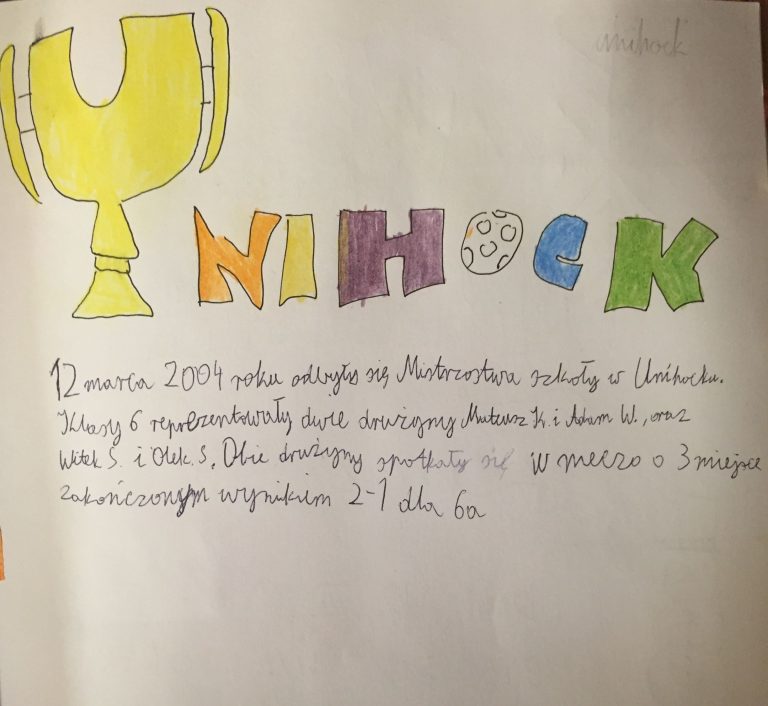 unihock
UNIHOCK
12 marca 2004 roku odbyły się Mistrzostwa szkoły w Unihocku.
Klasy 6 reprezentowały dwie drużyny Mateusz K. i Adam W., oraz
Witek S. i Olek. S. Obie drużyny spotkały się w meczo o 3 miejsce
zakończonym wynikiem 2-1 dla 6a